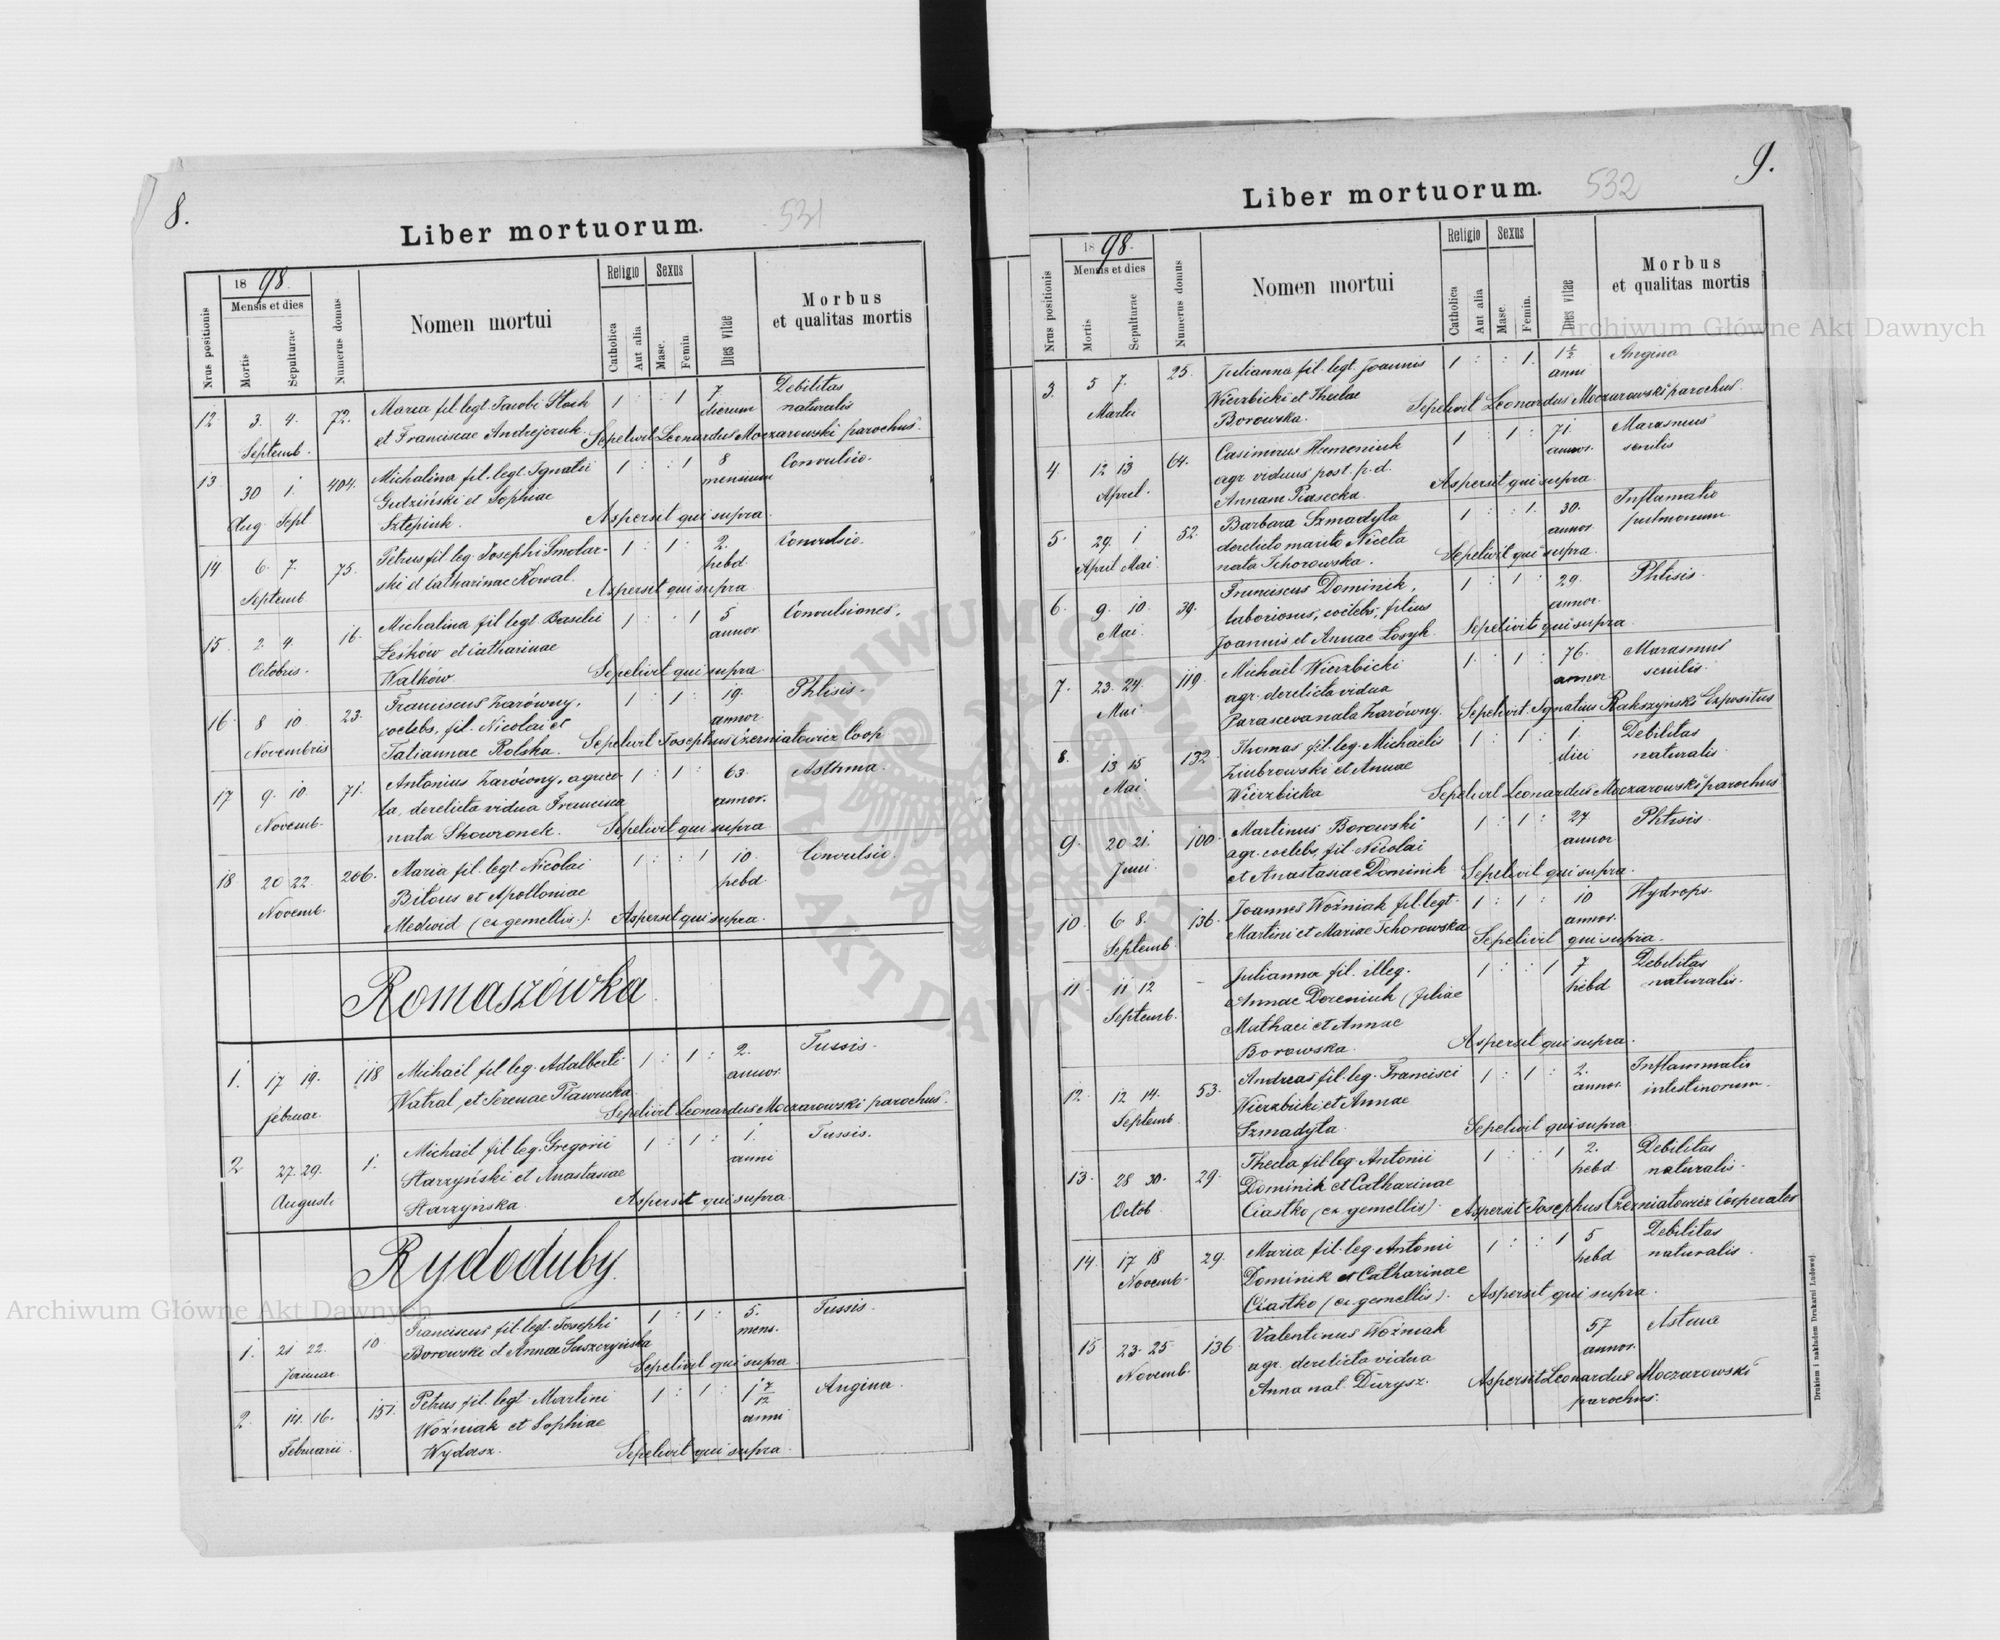 8.
Liber mortuorum.
531
Nrus positionis
1898.
Mensis et dies
Mortis
Sepulturae
Numerus domus
Nomen mortui
Religio
Catholica
Aut alia
Sexus
Masc.
Femin.
Dies vitae
Morbus
et qualitas mortis
12 3. 4. 72. Maria fil. legt. Jacobi Stock 1 : : 1 7 Debilitas
Septemb. et Franciscae Andrejczuk. dierum naturalis
Sepelivit Leonardus Moczarowski parochus.
13 30 1. 404. Michalina fil. legt. Ignatii 1 : : 1 8 Convulsio.
Aug. Sept Gudziński et Sophiae mensium
Sztepiuk. Aspersit qui supra.
14 6. 7. 75. Petrus fil. leg. Josephi Smolar- 1 : 1 : 2. Convulsio.
Septemb ski et Catharinae Kowal. hebd
Aspersit qui supra
15. 2. 4. 16. Michalina fil legt Basilii 1 : : 1 5 Convulsiones,
Octobris. Leśków et Catharinae annor.
Walków Sepelivit qui supra
16 8 10. 23. Franciscus Zarówny, 1 : 1 : 19. Phtisis.
Novembris coelebs, fil. Nicolai et annor
Tatiannae Rolska. Sepelivit Josephus Czerniatowicz Coop
17 9. 10. 71. Antonius Zarówny, agrico- 1 : 1 : 63. Asthma.
Novemb. la, derelicta vidua Francisca annor.
nata Skowronek. Sepelivit qui supra
18 20 22. 206. Maria fil. legt Nicolai 1 : : 1 10. Convulsio.
Novemb. Bilous et Apolloniae hebd
Medwid (ex gemellis.). Aspersit qui supra.
Romaszówka
1. 17 19. 118 Michaël fil leg. Adalberti 1 : 1 : 2. Tussis.
februar. Watral, et Irenae Pławucka annor.
Sepelivit Leonardus Moczarowski parochus.
2 27. 29. 1. Michaël fil leg. Gregorii 1 : 1 : 1. Tussis.
Augusti Starzyński et Anastasiae anni
Starzyńska. Aspersit qui supra
Rydoduby.
1. 21 22. 10 Franciscus fil. legt. Josephi 1 : 1 : 5. Tussis.
Januar. Borowski et Annae Suszczyńska mens.
Sepelivit qui supra
2. 14. 16. 151. Petrus fil. legt. Martini 1 : 1 : 1 7/12 Angina.
Februarii Woźniak et Sophiae anni
Wydasz. Sepelivit qui supra.
9.
Liber mortuorum.
532
Nrus positionis
1898.
Mensis et dies
Mortis
Sepulturae
Numerus domus
Nomen mortui
Religio
Catholica
Aut alia
Sexus
Masc.
Femin.
Dies vitae
Morbus
et qualitas mortis
3. 5 7. 25. Julianna fil. legt. Joannis 1 : : 1. 1 1/2 Angina
Martii Wierzbicki et Theclae anni
Borowska. Sepelivit Leonardus Moczarowski parochus.
4. 12 13 64. Casimirus Humeniuk 1 : 1 : 71. Marasmus
April. agr viduus post. p. d. annor. senilis
Annam Piasecka. Aspersit qui supra.
5. 29. 1 52. Barbara Szmadyła 1 : : 1. 30. Inflamatio
April Mai derelicto marito Niceta annor. pulmonum
nata Tchorowska. Sepelivit qui supra.
6. 9. 10. 39. Franciscus Dominik, 1 : 1 : 29. Phtisis.
Mai. laboriosus, coelebs, filius annor.
Joannis et Annae Łosyk. Sepelivit qui supra
7. 23. 24. 119. Michaël Wierzbicki 1. : 1 : 76. Marasmus
Mai agr. derelicta vidua annor senilis.
Parasceva nata Zarówny. Sepelivit. Ignatius Rakszyński Expositus
8. 13 15 132 Thomas fil. leg. Michaelis 1 : 1 : 1. Debilitas
Mai Ziubrowski et Annae diei naturalis.
Wierzbicka Sepelivit Leonardus Moczarowski parochus
9. 20 21. 100. Martinus Borowski 1 : 1 : 27 Phtisis.
Juni agr. coelebs, fil. Nicolai annor
et Anastasiae Dominik Sepelivit qui supra.
10. 6 8. 136. Joannes Woźniak fil. legt. 1 : 1 : 10 Hydrops.
Septemb. Martini et Mariae Tchorowska annor.
Sepelivit qui supra.
11. 11 12 - Julianna fil. illeg. 1 : : 1 7 Debilitas
Septemb. Annae Doreniuk (filiae hebd naturalis.
Mathaei et Annae
Borowska. Aspersit qui supra.
12. 12 14. 53. Andreas fil. leg. Francisci 1 : 1 : 2. Inflammatio
Septemb. Wierzbicki et Annae annor. intestinorum.
Szmadyła. Sepelivit qui supra
13. 28 30. 29. Thecla fil. leg. Antonii 1 : : 1 2. Debilitas
Octob Dominik et Catharinae hebd naturalis.
Ciastko (ex gemellis). Aspersit Josephus Czerniatowicz Cooperator
14. 17 18 29. Maria fil. leg. Antonii 1 : : 1 5 Debilitas
Novemb. Dominik et Catharinae hebd naturalis.
Ciastko (ex gemellis). Aspersit qui supra.
15 23. 25. 136. Valentinus Woźniak 57 Astma
Novemb. agr. derelicta vidua annor.
Anna nat. Durysz. Aspersit Leonardus Moczarowski
parochus.
Drukiem i nakładem Drukarni Ludowej.
ARCHIWUM GŁÓWNE AKT DAWNYCH
Archiwum Główne Akt Dawnych
Archiwum Główne Akt Dawnych